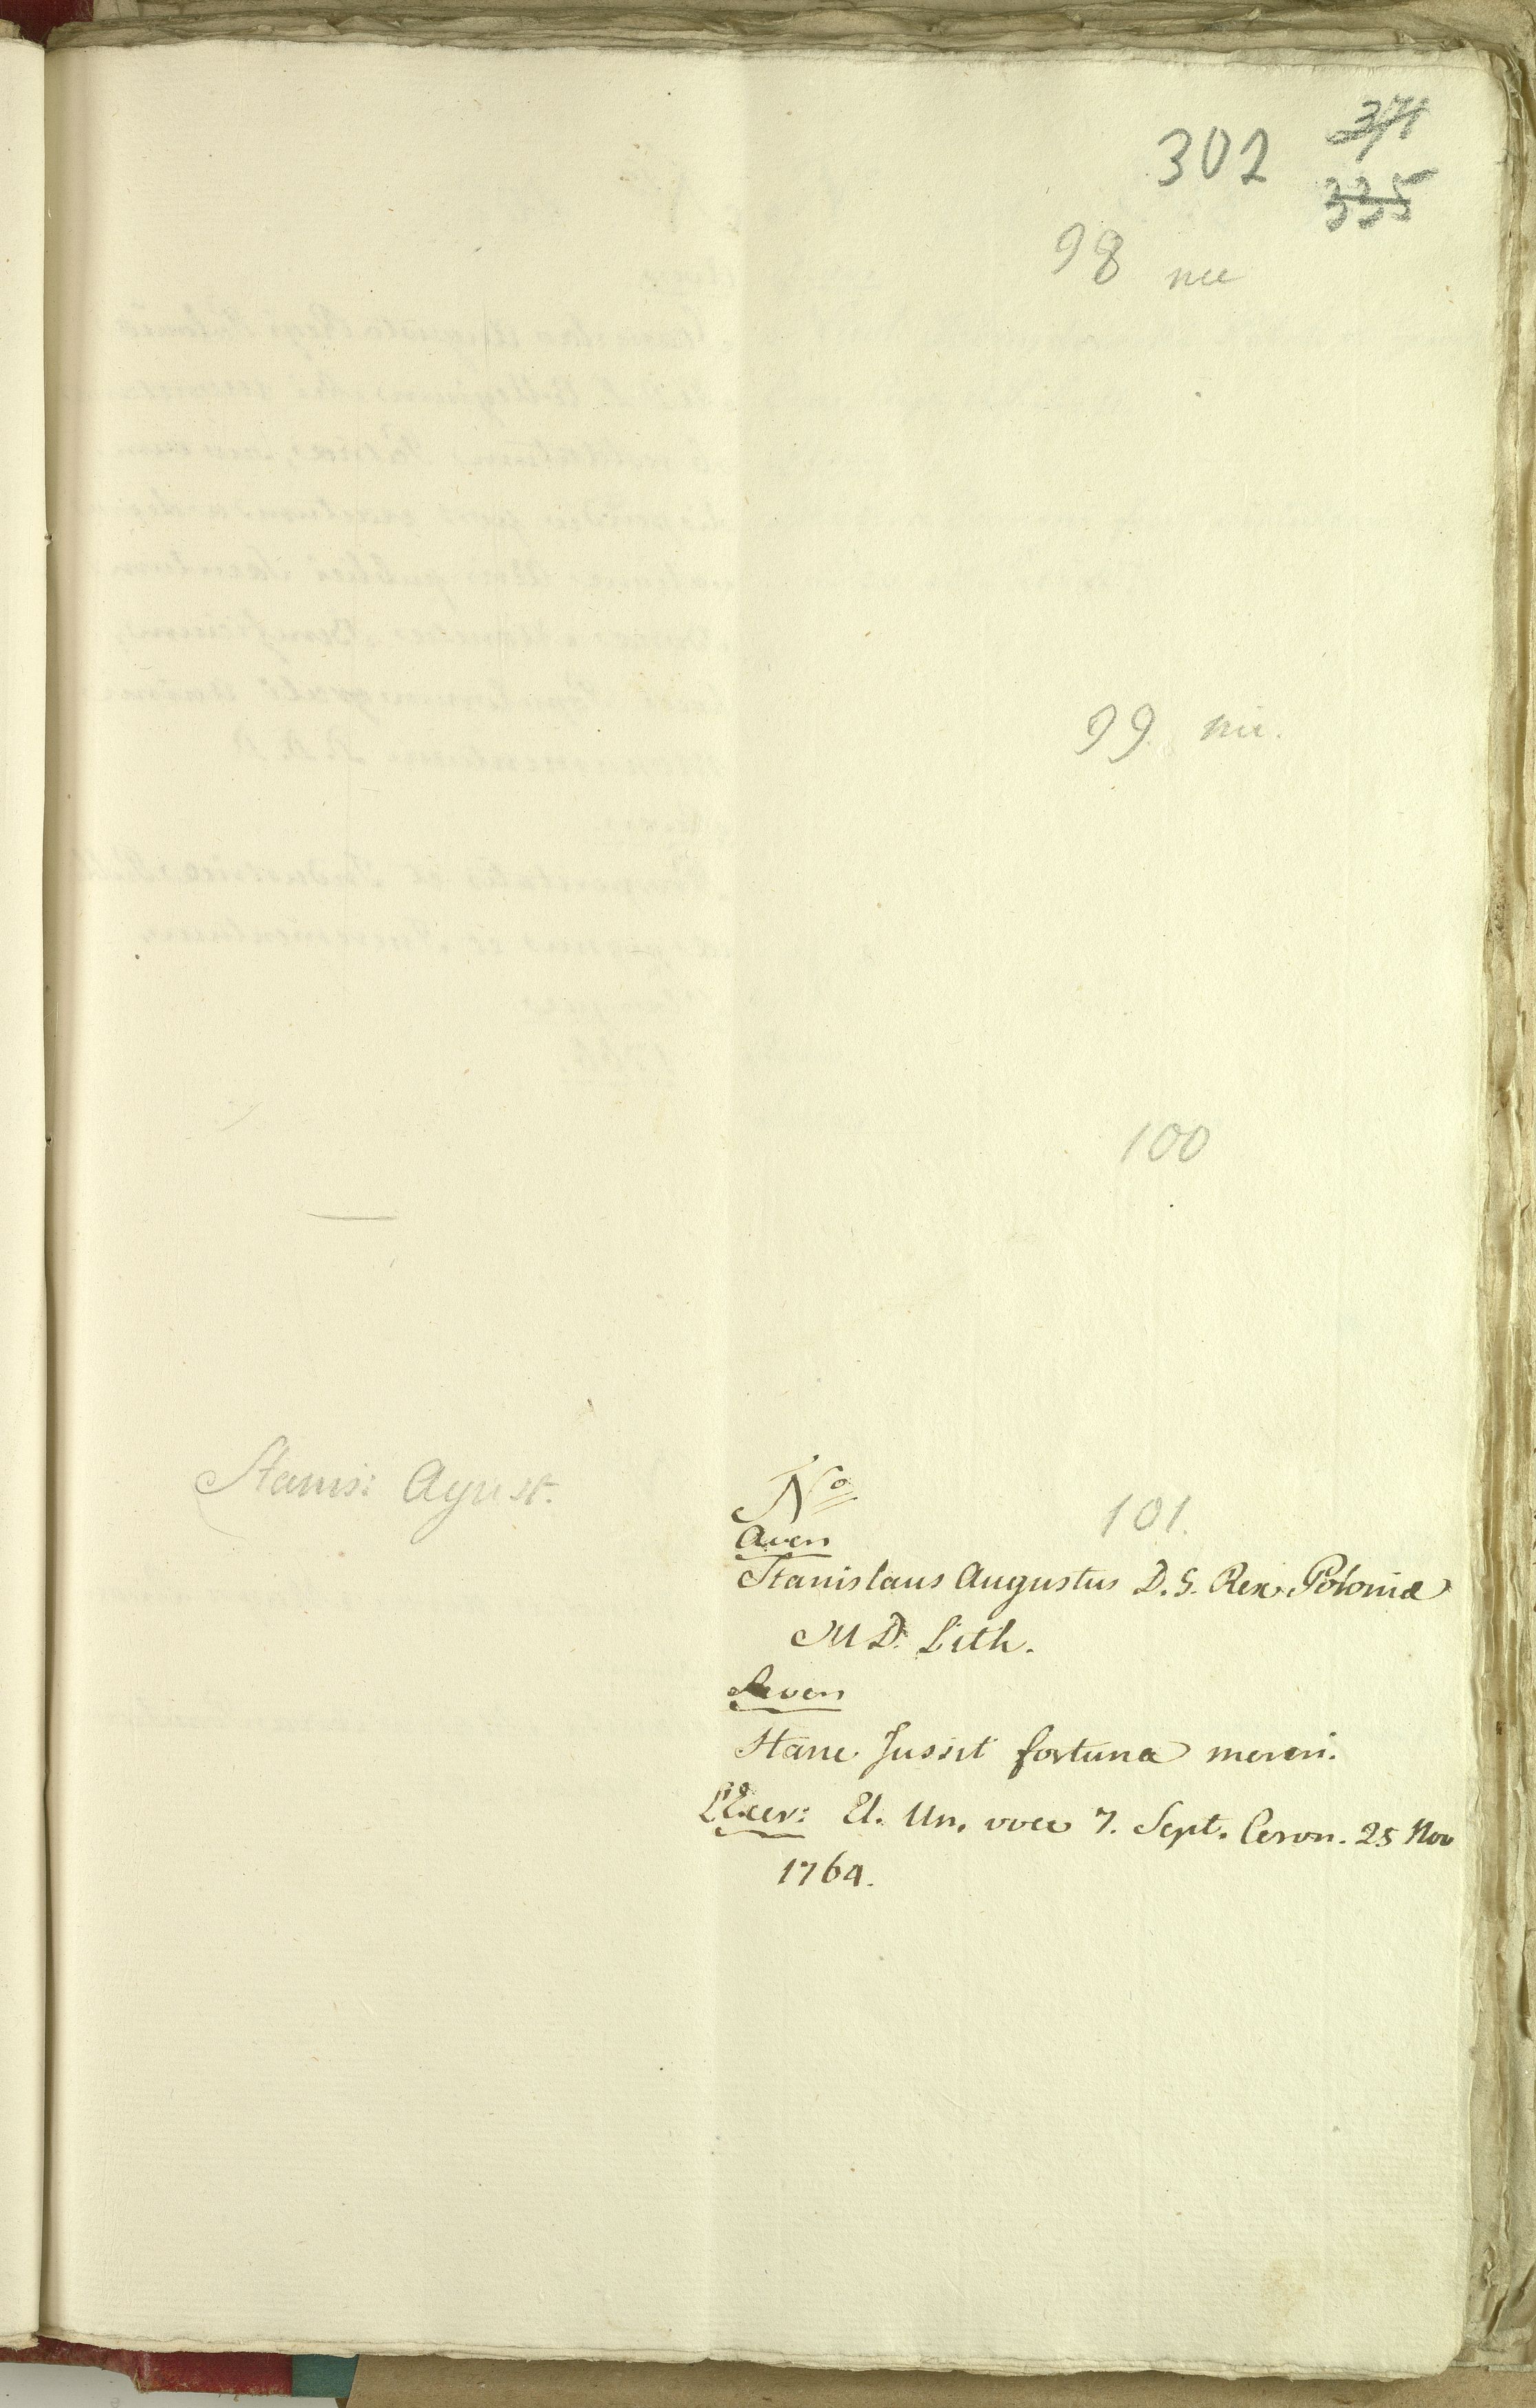 302
371
335
98 nie
99. nie.
100
Stanis: Agust.
No
101.
Avers
Stanislaus Augustus D. G. Rex Poloniæ
M D. Lith.
Revers
Hanc Jussit fortuna mereri.
L'Exer: El. Un. voce 7. Sept. Coron. 25 Nov
1764.